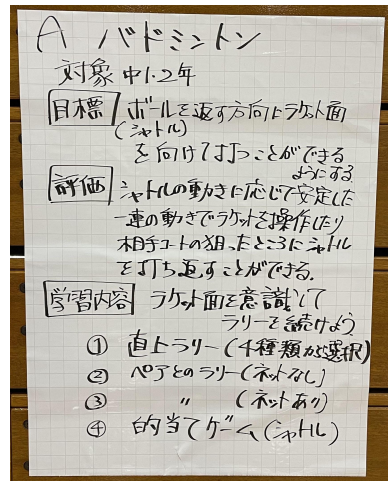 A バドミントン
対象 中1・2年
目標 ボールを返す方向にラケット面
(シャトル)
を向けて打つことができる
ようにする
評価 シャトルの動きに応じて安定した
一連の動きでラケットを操作したり
相手コートの狙ったところにシャトル
を打ち返すことができる。
学習内容 ラケット面を意識して
ラリーを続けよう
① 直上ラリー(4種類から選択)
② ペアとのラリー(ネットなし)
③ 〃 (ネットあり)
④ 的当てゲーム(シャトル)